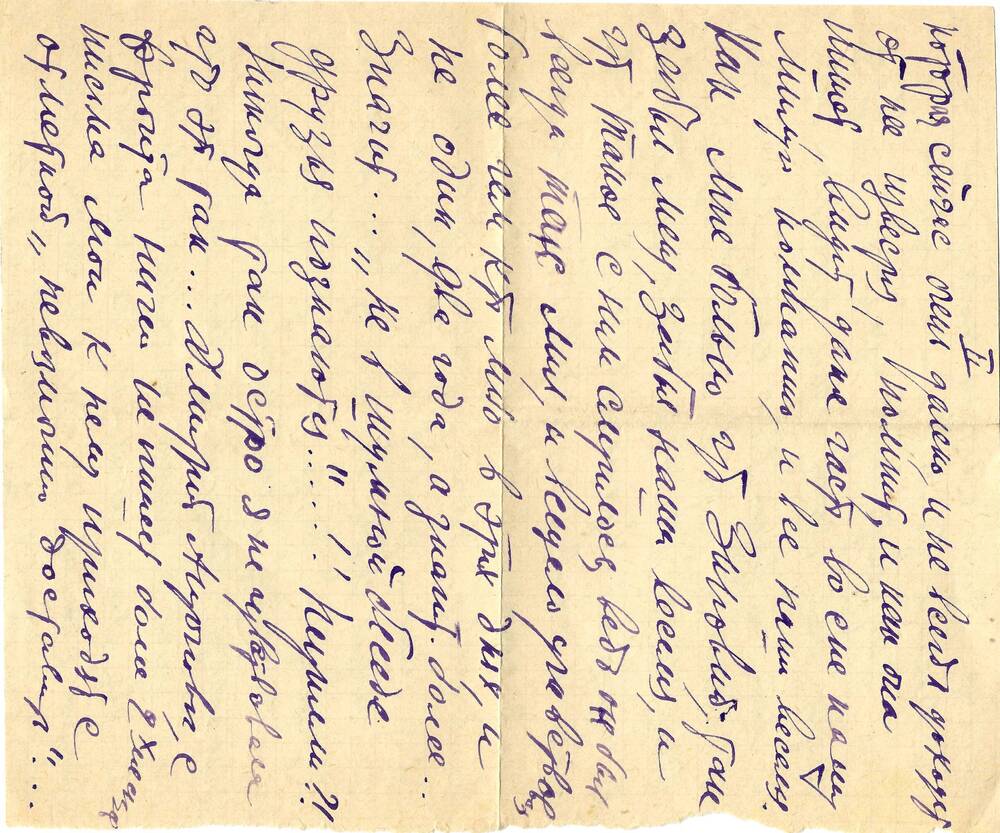 II
которая сейчас очень далеко, и не всегда доходят
от нее известия, помнит, и как она
пишет, видит даже часто во сне нашу
милую компанию, и все наши веселья.
Как мне больно что Зиновий, так
забыл меня, забыл наши веселия, и
что такое с ним случилось, ведь он был
всегда так мил, и всецело учавствовал
более чем кто либо в этих днях, и
не один, два года, а значит. более..
Значит... „не в шумной беседе
друзья познаются!!...!! Неужели?!
Никогда так остро я не чувствовала
что это так... Дмитрий Антонович, с
фронта ничего не пишет более 2х месяцев
письма мои к нему приходят с
отметкой „невозможно доставить"...